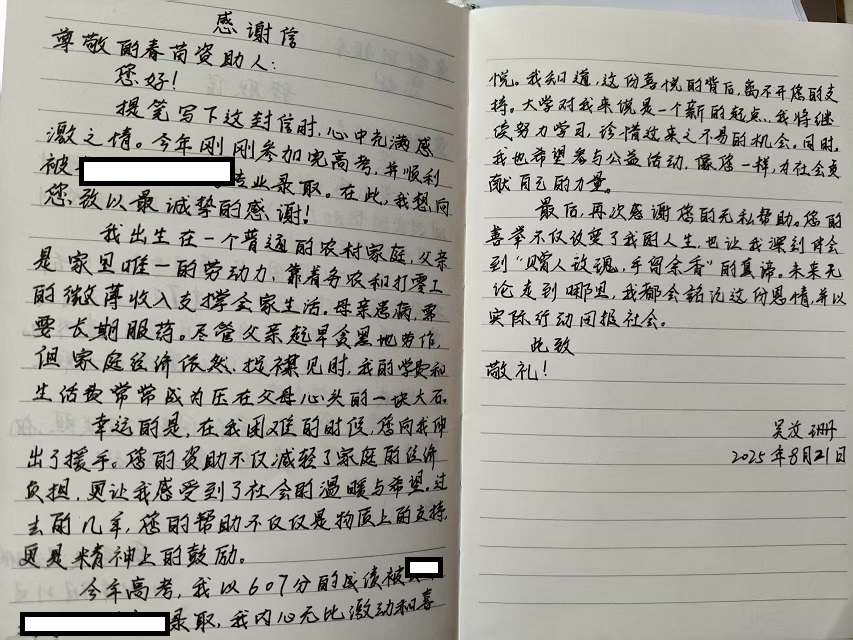 感谢信
尊敬的春茵资助人：
您好！
提笔写下这封信时，心中充满感
激之情。今年刚刚参加完高考，并顺利
被专业录取。在此，我想向
您，致以最诚挚的感谢！
我出生在一个普通的农村家庭，父亲
是家里唯一的劳动力，靠着务农和打零工
的微薄收入支撑全家生活。母亲患病，需
要长期服药。尽管父亲起早贪黑地劳作，
但家庭经济依然捉襟见肘，我的学费和
生活费常常成为压在父母心头的一块大石。
幸运的是，在我困难的时候，您向我伸
出了援手。您的资助不仅减轻了家庭的经济
负担，更让我感受到了社会的温暖与希望。过
去的几年，您的帮助不仅仅是物质上的支持，
更是精神上的鼓励。
今年高考，我以607分的成绩被
录取，我内心无比激动和喜
悦。我知道，这份喜悦的背后，离不开您的支
持。大学对我来说是一个新的起点，我将继
续努力学习，珍惜这来之不易的机会。同时，
我也希望参与公益活动，像您一样，为社会贡
献自己的力量。
最后，再次感谢您的无私帮助。您的
善举不仅改变了我的人生，也让我深刻体会
到“赠人玫瑰，手留余香”的真谛。未来无
论走到哪里，我都会铭记这份恩情，并以
实际行动回报社会。
此致
敬礼！
吴 珊
2025年8月21日